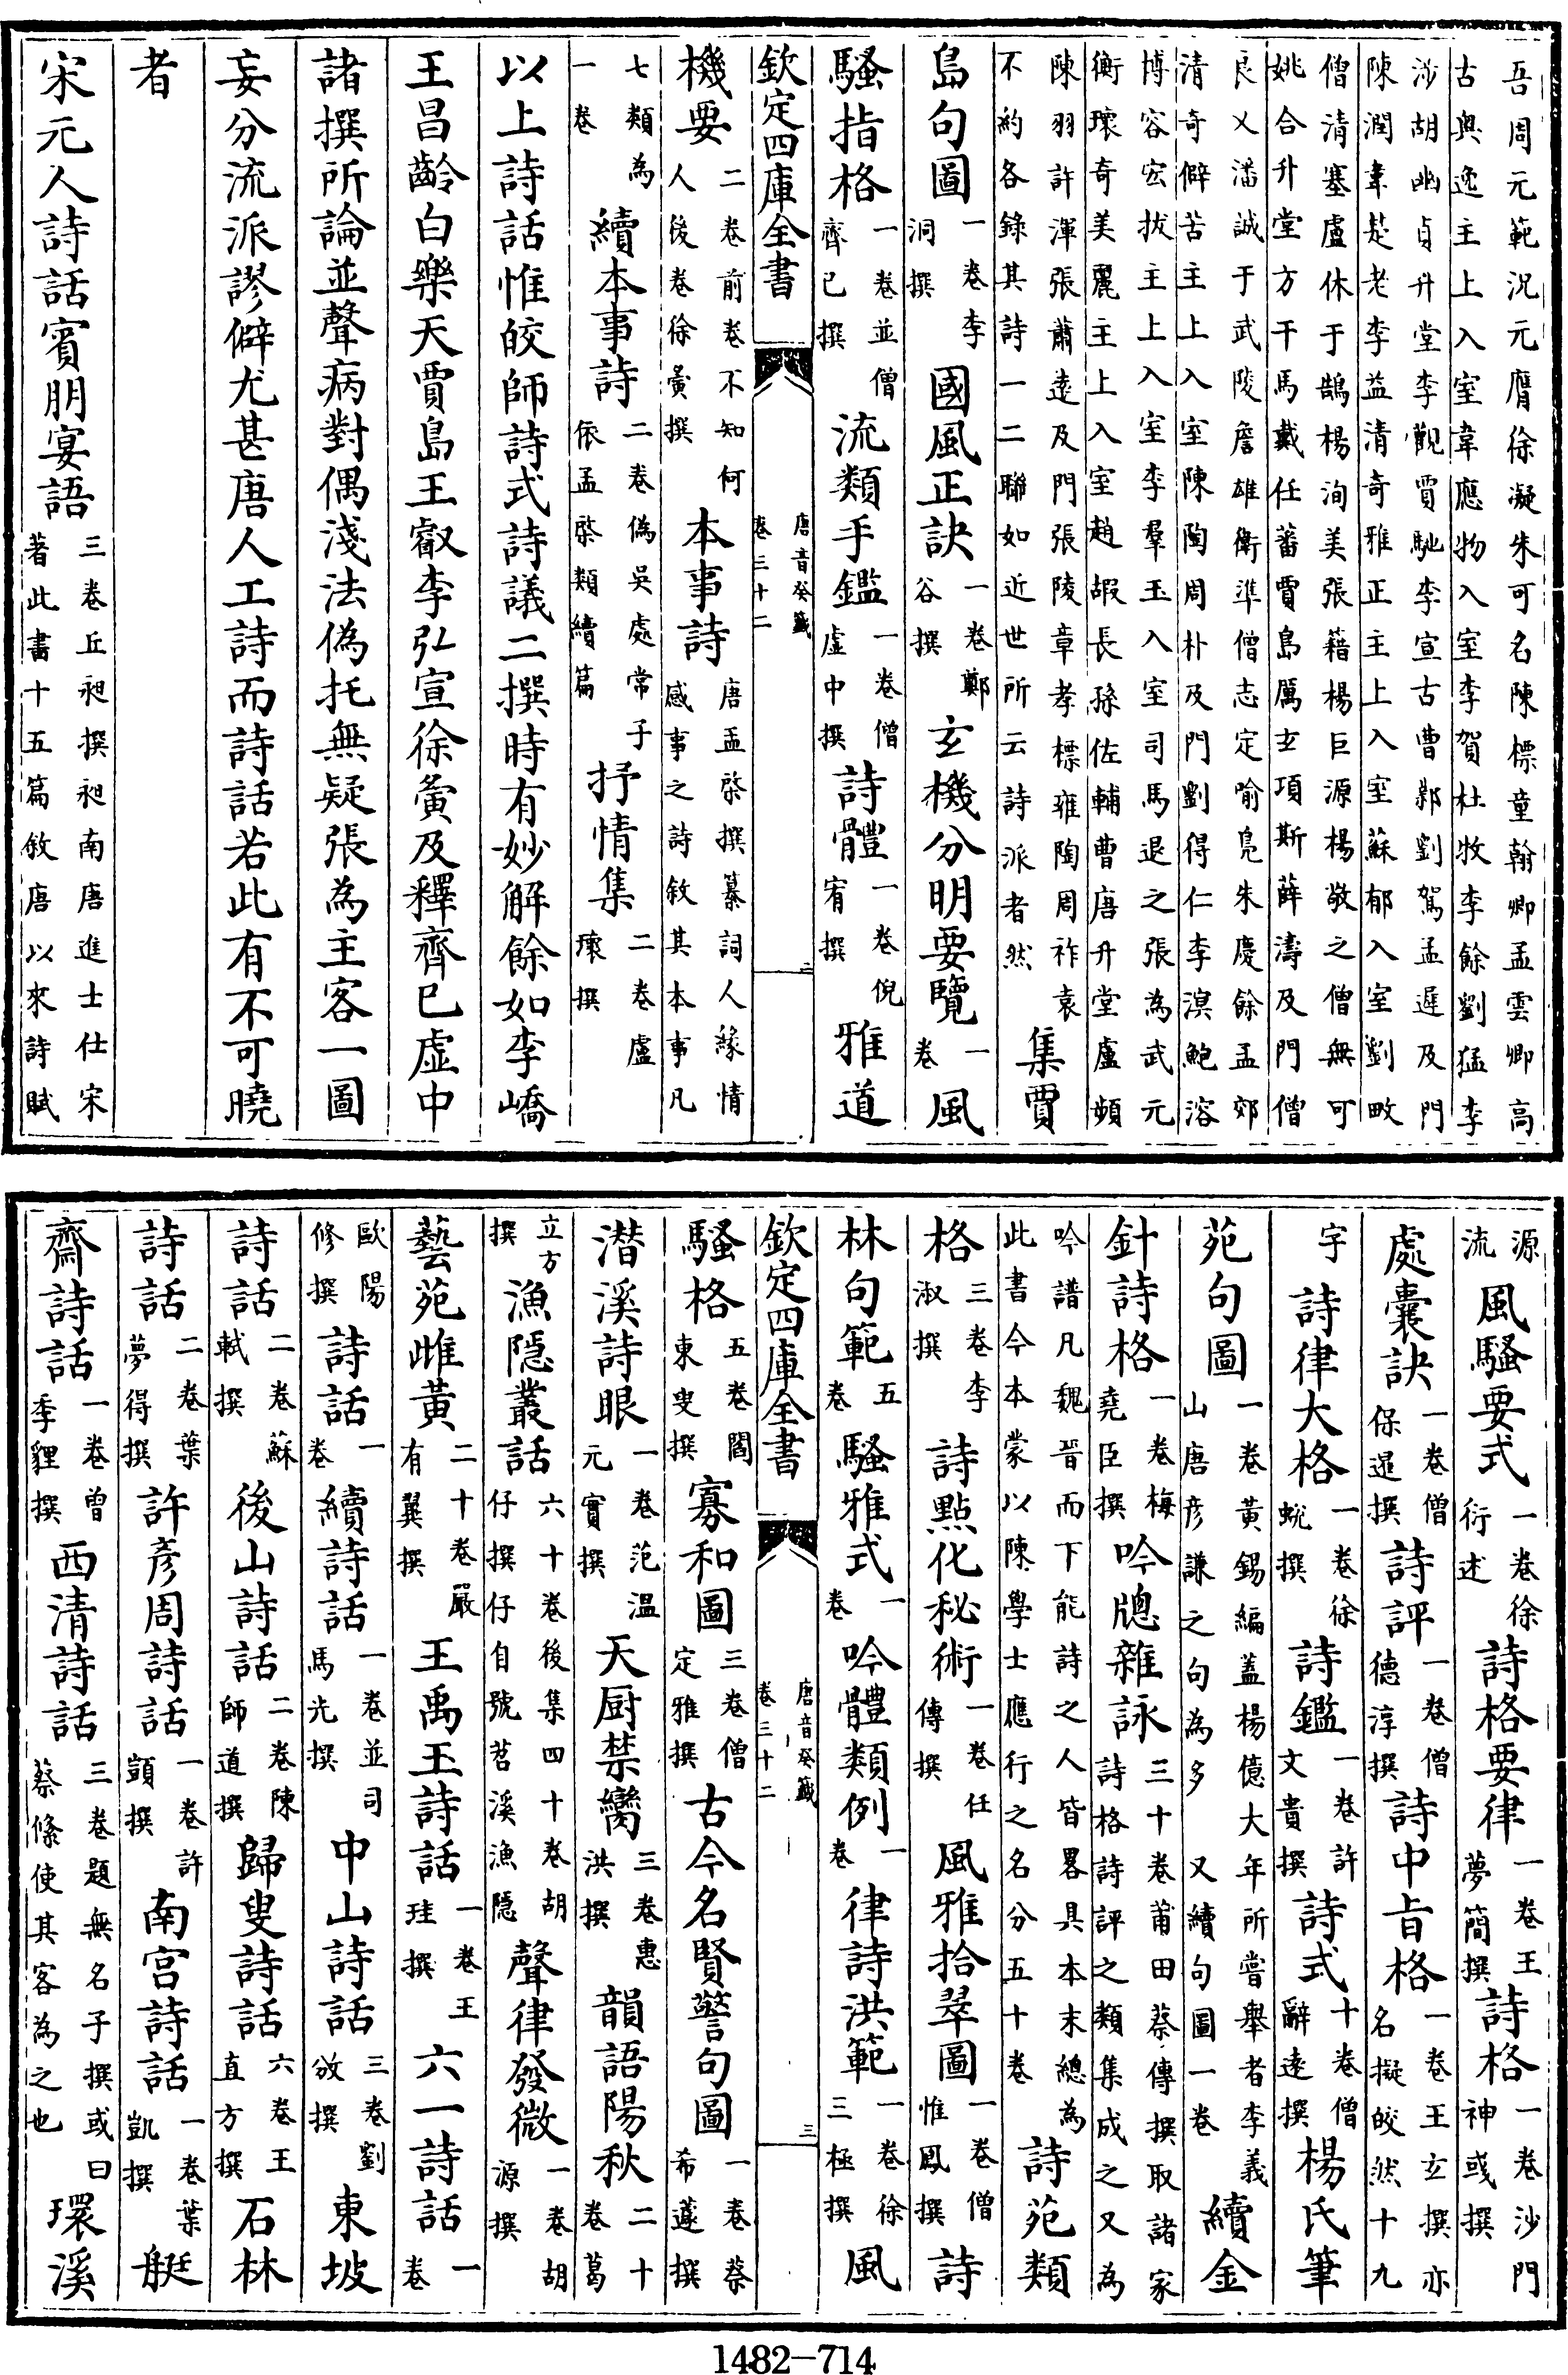 吾周元範況元膺徐凝朱可名陳標童翰卿孟雲卿高
古與逸主上入室韋應物入室李賀杜牧李餘劉猛李
涉胡幽貞升堂李觀賈馳李宣古曹鄴劉駕孟遲及門
陳潤韋楚老李益清奇雅正主上入室蘇郁入室劉畋
僧清塞盧休于鵠楊洵美張籍楊巨源楊敬之僧無可
姚合升堂方干馬戴任蕃賈島厲玄項斯薛濤及門僧
良乂潘誠于武陵詹雄衛準僧志定喻鳧朱慶餘孟郊
清奇僻苦主上入室陳陶周朴及門劉得仁李溟鮑溶
博容宏拔主上入室李羣玉入室司馬退之張為武元
衡瓌奇美麗主上入室趙嘏長孫佐輔曹唐升堂盧頻
陳羽許渾張蕭遠及門張陵章孝標雍陶周祚袁
不約各錄其詩一二聯如近世所云詩派者然 集賈
島句圖 一卷李洞撰 國風正訣 一卷鄭谷撰 玄機分明要覽 一卷 風
騷指格 一卷並僧齊已撰 流類手鑑 一卷僧虛中撰 詩體 一卷倪宥撰 雅道
欽定四庫全書 唐音癸籤 卷三十二 二
機要 二卷前卷不知何人後卷徐夤撰 本事詩 唐孟棨撰纂詞人緣情感事之詩敘其本事凡
七類為一卷 續本事詩 二卷偽吳處常子依孟棨類續篇 抒情集 二卷盧瓌撰
以上詩話惟皎師詩式詩議二撰時有妙解餘如李嶠
王昌齡白樂天賈島王叡李弘宣徐夤及釋齊已虛中
諸撰所論並聲病對偶淺法偽托無疑張為主客一圖
妄分流派謬僻尤甚唐人工詩而詩話若此有不可曉
者
宋元人詩話賓朋宴語 三卷丘昶撰昶南唐進士仕宋著此書十五篇敘唐以來詩賦
源流 風騷要式 一卷徐衍述 詩格要律 一卷王夢簡撰 詩格 一卷沙門神彧撰
處囊訣 一卷僧保暹撰 詩評 一卷僧德淳撰 詩中旨格 一卷王玄撰亦名擬皎然十九
字 詩律大格 一卷徐蛻撰 詩鑑 一卷許文貴撰 詩式 十卷僧辭遠撰 楊氏筆
苑句圖 一卷黃錫編蓋楊億大年所嘗舉者李義山唐彥謙之句為多又續句圖一卷 續金
針詩格 一卷梅堯臣撰 吟牕雜詠 三十卷莆田蔡傳撰取諸家詩格詩評之類集成之又為
吟譜凡魏晉而下能詩之人皆畧具本末總為此書今本蒙以陳學士應行之名分五十卷 詩苑類
格 三卷李淑撰 詩點化秘術 一卷任傳撰 風雅拾翠圖 一卷僧惟鳳撰 詩
林句範 五卷 騷雅式 一卷 吟體類例 一卷 律詩洪範 一卷徐三極撰 風
欽定四庫全書 唐音癸籤 卷三十二 三
騷格 五卷閻東叟撰 寡和圖 三卷僧定雅撰 古今名賢警句圖 一卷蔡希蘧撰
潛溪詩眼 一卷范温元實撰 天厨禁臠 三卷惠洪撰 韻語陽秋 二十卷葛
立方撰 漁隱叢話 六十卷後集四十卷胡仔撰仔自號苕溪漁隱 聲律發微 一卷胡源撰
藝苑雌黃 二十卷嚴有翼撰 王禹玉詩話 一卷王珪撰 六一詩話 一卷
歐陽修撰 詩話 一卷 續詩話 一卷並司馬光撰 中山詩話 三卷劉攽撰 東坡
詩話 二卷蘇軾撰 後山詩話 二卷陳師道撰 歸叟詩話 六卷王直方撰 石林
詩話 二卷葉夢得撰 許彥周詩話 一卷許顗撰 南宮詩話 一卷葉凱撰 艇
齋詩話 一卷曾季貍撰 西清詩話 三卷題無名子撰或曰蔡絛使其客為之也 環溪
1482—714